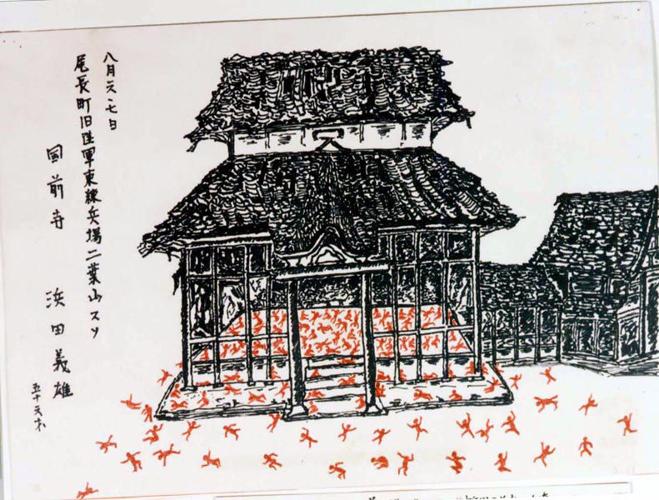 八月六七日
尾長町旧陸軍東練兵場二葉山スソ
国前寺 浜田義雄
五十六才